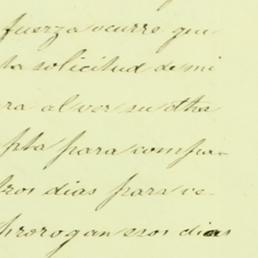 fuerza ocurre que
ta solicitud de mi
ra al ver su dha
pta para compa-
tros dias para ve-
prorogan esos dias